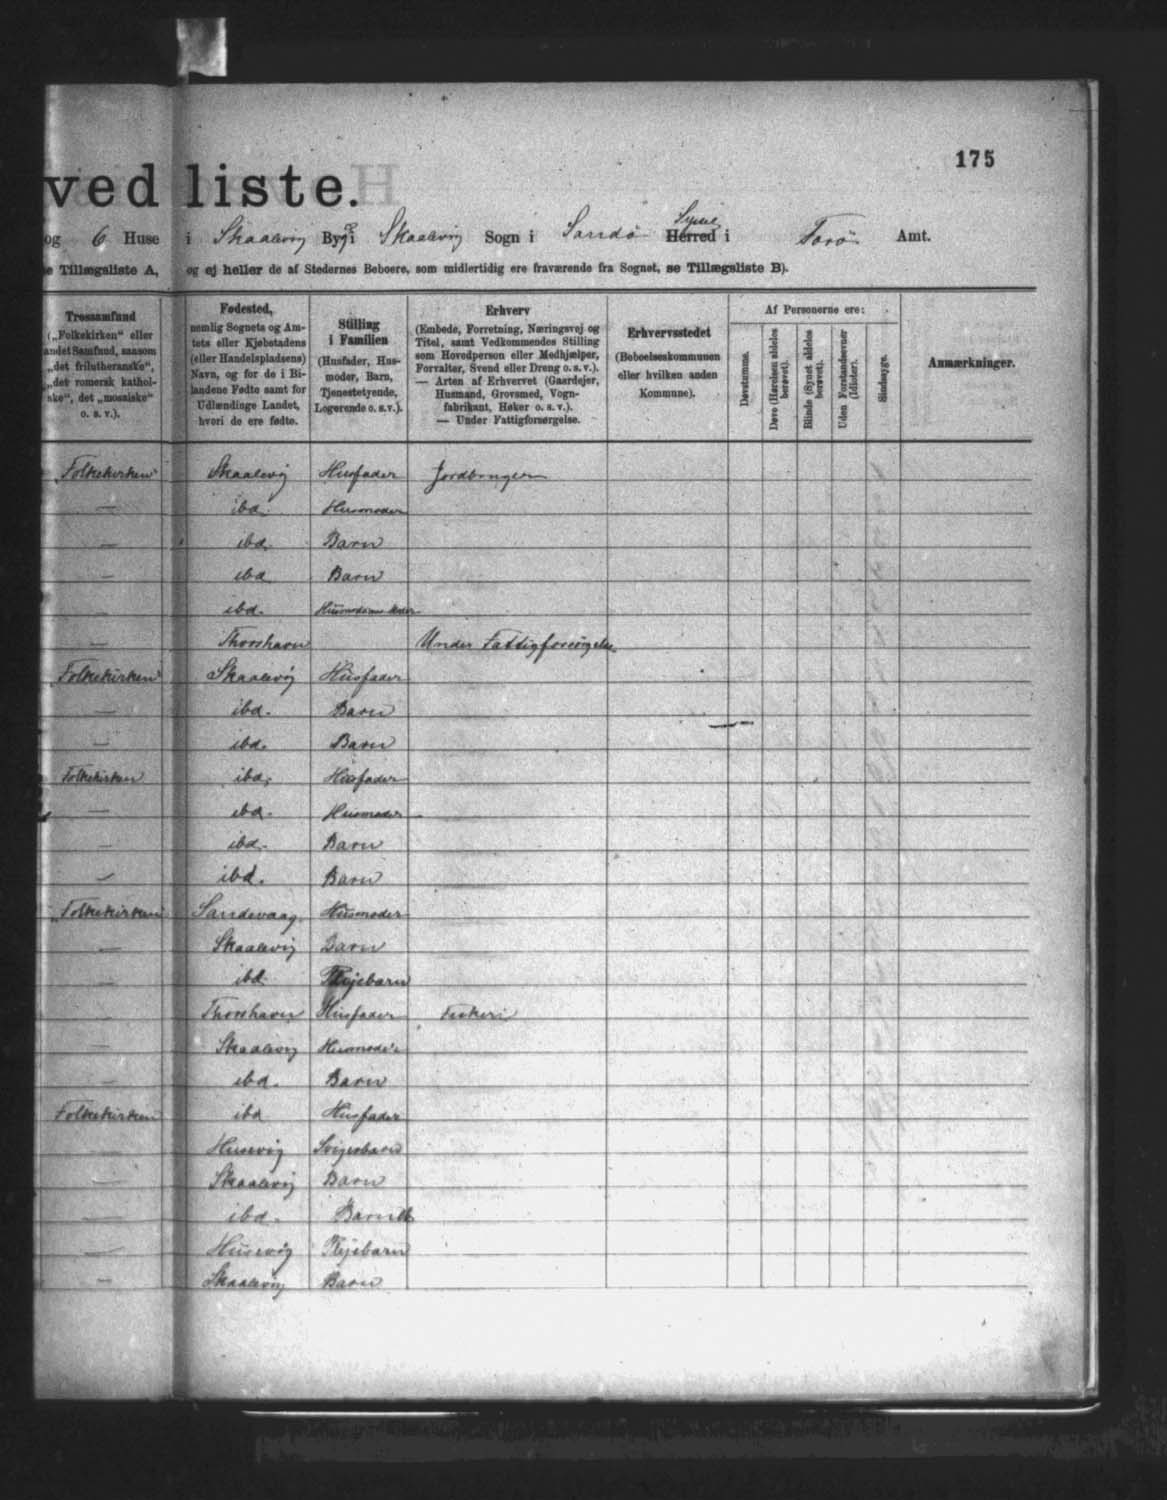 175
ved liste.
og 6 Huse i Skaalevig Bygd i Skaalevig Sogn i Sandø Syssel Herred i Færø Amt.
e Tillægsliste A, og ej heller de af Stedernes Beboere, som midlertidig ere fraværende fra Sognet, se Tillægsliste B).
Trossamfund
(„Folkekirken“ eller
andet Samfund, saasom
„det frilutheranske“,
„det romersk kathol-
ske“, det „mosaiske“
o. s. v.).
Fødested,
nemlig Sognets og Am-
tets eller Kjøbstadens
(eller Handelspladsens)
Navn, og for de i Bi-
landene Fødte samt for
Udlændinge Landet,
hvori de ere fødte.
Stilling
i Familien
(Husfader, Hus-
moder, Barn,
Tjenestetyende,
Logerende o. s. v.).
Erhverv
(Embede, Forretning, Næringsvej og
Titel, samt Vedkommendes Stilling
som Hovedperson eller Medhjælper,
Forvalter, Svend eller Dreng o. s. v.).
— Arten af Erhvervet (Gaardejer,
Husmand, Grovsmed, Vogn-
fabrikant, Høker o. s. v.).
— Under Fattigforsørgelse.
Erhvervsstedet
(Beboelseskommunen
eller hvilken anden
Kommune).
Af Personerne ere:
Døvstumme.
Døve (Hørelsen aldeles
berøvet).
Blinde (Synet aldeles
berøvet).
Uden Forstandsevner
(Idioter).
Sindssyge.
Anmærkninger.
„Folkekirken“ Skaalevig Husfader Jordbruger
— ibd. Husmoder
— ibd. Barn
— ibd Barn
— ibd. Husmoderens Moder
— Thorshavn Under Fattigforsørgelse
„Folkekirken“ Skaalevig Husfader
— ibd. Barn
— ibd. Barn
Folkekirken ibd. Husfader
— ibd. Husmoder
— ibd. Barn
— ibd. Barn
„Folkekirken“ Sandevaag Husmoder
— Skaalevig Barn
— ibd Plejebarn
— Thorshavn Husfader Fiskeri
— Skaalevig Husmoder
— ibd. Barn
Folkekirken ibd Husfader
— Husevig Svigerbarn
— Skaalevig Barn
— ibd. Barn
— Husevig Plejebarn
— Skaalevig Barn